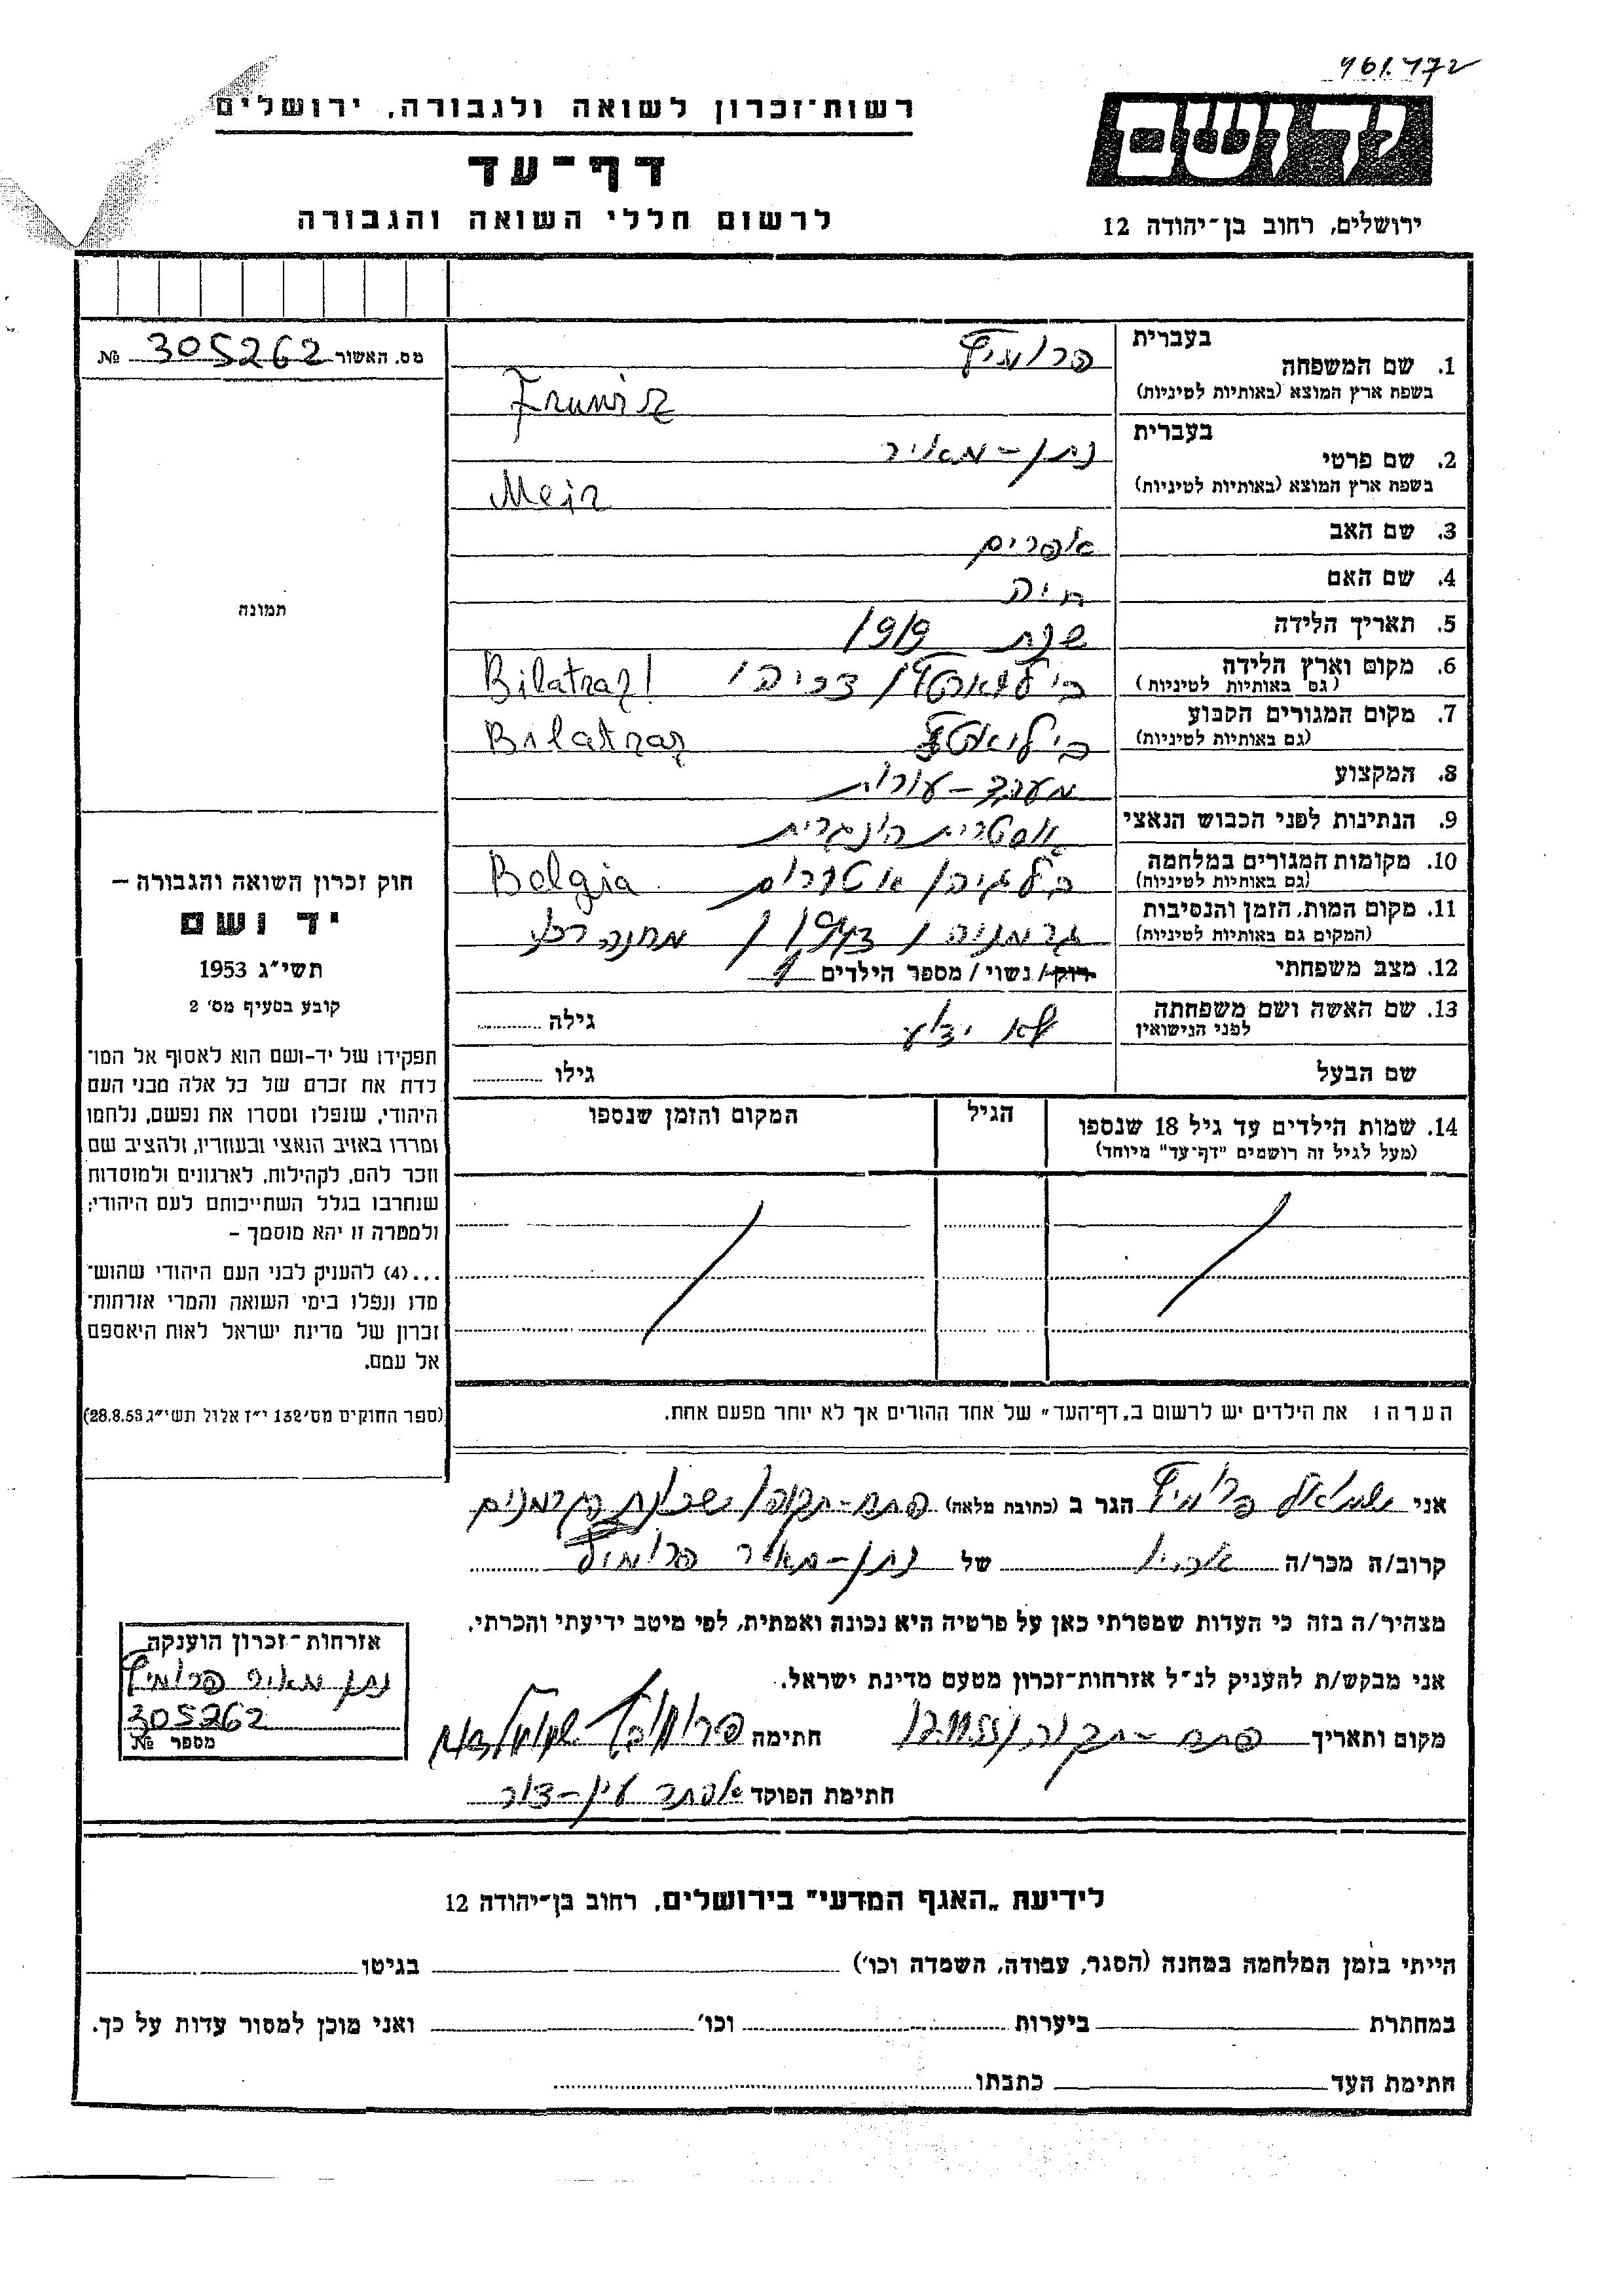 461.472
רשות־זכרון לשואה ולגבורה, ירושלים
יד ושם
דף־עד
לרשום חללי השואה והגבורה
ירושלים, רחוב בן־יהודה 12
מס. האשור 305262 №
1. שם המשפחה בעברית פרומיץ
בשפת ארץ המוצא (באותיות לטיניות)
2. שם פרטי בעברית נתן-מאיר
בשפת ארץ המוצא (באותיות לטיניות) Meir
3. שם האב אפרים
4. שם האם חיה
5. תאריך הלידה שנת 1919
6. מקום וארץ הלידה
(גם באותיות לטיניות)
7. מקום המגורים הקבוע
(גם באותיות לטיניות) Bilatraz
8. המקצוע מעבד-עורות
9. הנתינות לפני הכבוש הנאצי אוסטרית הונגרית
10. מקומות המגורים במלחמה בלגיה
(גם באותיות לטיניות) Belgia
11. מקום המות, הזמן והנסיבות גרמניה / 1943 / מחנה רכוז
(המקום גם באותיות לטיניות)
12. מצב משפחתי רווק/ נשוי / מספר הילדים 1
13. שם האשה ושם משפחתה לא ידוע גילה
לפני הנישואין
שם הבעל גילו
14. שמות הילדים עד גיל 18 שנספו הגיל המקום והזמן שנספו
(מעל לגיל זה רושמים "דף־עד" מיוחד)
הערה: את הילדים יש לרשום ב„דף־העד" של אחד ההורים אך לא יותר מפעם אחת.
תמונה
חוק זכרון השואה והגבורה –
יד ושם
תשי״ג 1953
קובע בסעיף מס׳ 2
תפקידו של יד-ושם הוא לאסוף אל המו־
לדת את זכרם של כל אלה מבני העם
היהודי, שנפלו ומסרו את נפשם, נלחמו
ומרדו באויב הנאצי ובעוזריו, ולהציב שם
וזכר להם, לקהילות, לארגונים ולמוסדות
שנחרבו בגלל השתייכותם לעם היהודי;
ולמטרה זו יהא מוסמך –
...(4) להעניק לבני העם היהודי שהוש־
מדו ונפלו בימי השואה והמרי אזרחות־
זכרון של מדינת ישראל לאות היאספם
אל עמם.
(ספר החוקים מס׳ 132 י״ז אלול תשי״ג 28.8.53)
אני שמואל פרומיץ הגר ב (כתובת מלאה) פתח-תקוה / שכונת הגרמנים
קרוב/ה מכר/ה אחיו של נתן-מאיר פרומיץ
מצהיר/ה בזה כי העדות שמסרתי כאן על פרטיה היא נכונה ואמתית, לפי מיטב ידיעתי והכרתי.
אני מבקש/ת להעניק לנ״ל אזרחות־זכרון מטעם מדינת ישראל.
מקום ותאריך פתח-תקוה חתימה
חתימת הפוקד אסתר עין-דור
אזרחות־זכרון הוענקה
נתן מאיר פרומיץ
305262
מספר №
לידיעת „האגף המדעי" בירושלים, רחוב בן־יהודה 12
הייתי בזמן המלחמה במחנה (הסגר, עבודה, השמדה וכו׳) בגיטו
במחתרת ביערות וכו׳ ואני מוכן למסור עדות על כך.
חתימת העד כתבתו